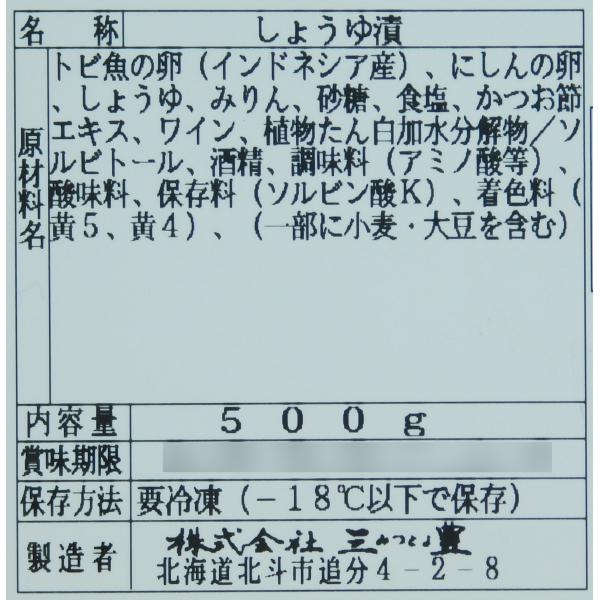 名称 しょうゆ漬
原材料名 トビ魚の卵（インドネシア産）、にしんの卵
、しょうゆ、みりん、砂糖、食塩、かつお節
エキス、ワイン、植物たん白加水分解物／ソ
ルビトール、酒精、調味料（アミノ酸等）、
酸味料、保存料（ソルビン酸Ｋ）、着色料（
黄５、黄４）、（一部に小麦・大豆を含む）
内容量 ５００ｇ
賞味期限
保存方法 要冷凍（－18℃以下で保存）
製造者 株式会社 三
豊
北海道北斗市追分４－２－８